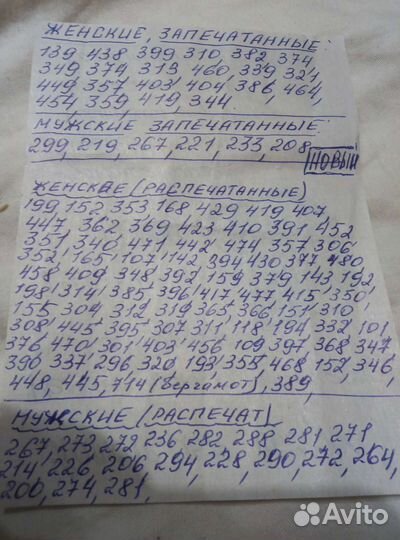 ЖЕНСКИЕ, ЗАПЕЧАТАННЫЕ:
139, 438, 399, 310, 382, 374,
349, 374, 313, 460, 339, 321,
449, 357, 403, 404, 386, 464,
454, 359, 419, 344.
МУЖСКИЕ ЗАПЕЧАТАННЫЕ:
299, 219, 267, 221, 233, 208,
НОВЫЙ
ЖЕНСКИЕ (РАСПЕЧАТАННЫЕ)
199, 152, 353, 168, 429, 419, 407,
447, 362, 369, 423, 410, 391, 452
351, 340, 471, 442, 474, 357, 306,
352, 165, 107, 142, 394, 430, 377, 480,
458, 409, 348, 392, 159, 379, 143, 192,
198, 314, 385, 396, 417, 477, 415, 350,
155, 304, 312, 319, 365, 366, 151, 310,
308, 445, 395, 307, 311, 118, 194, 332, 101,
376, 470, 301, 403, 456, 109, 397, 368, 347,
390, 337, 296, 320, 193, 355, 468, 152, 346,
448, 445, 714 (Бергамот), 389,
МУЖСКИЕ (РАСПЕЧАТ)
267, 273, 272, 236, 282, 288, 281, 271,
214, 226, 206, 294, 228, 290, 272, 264,
200, 274, 281,
Avito